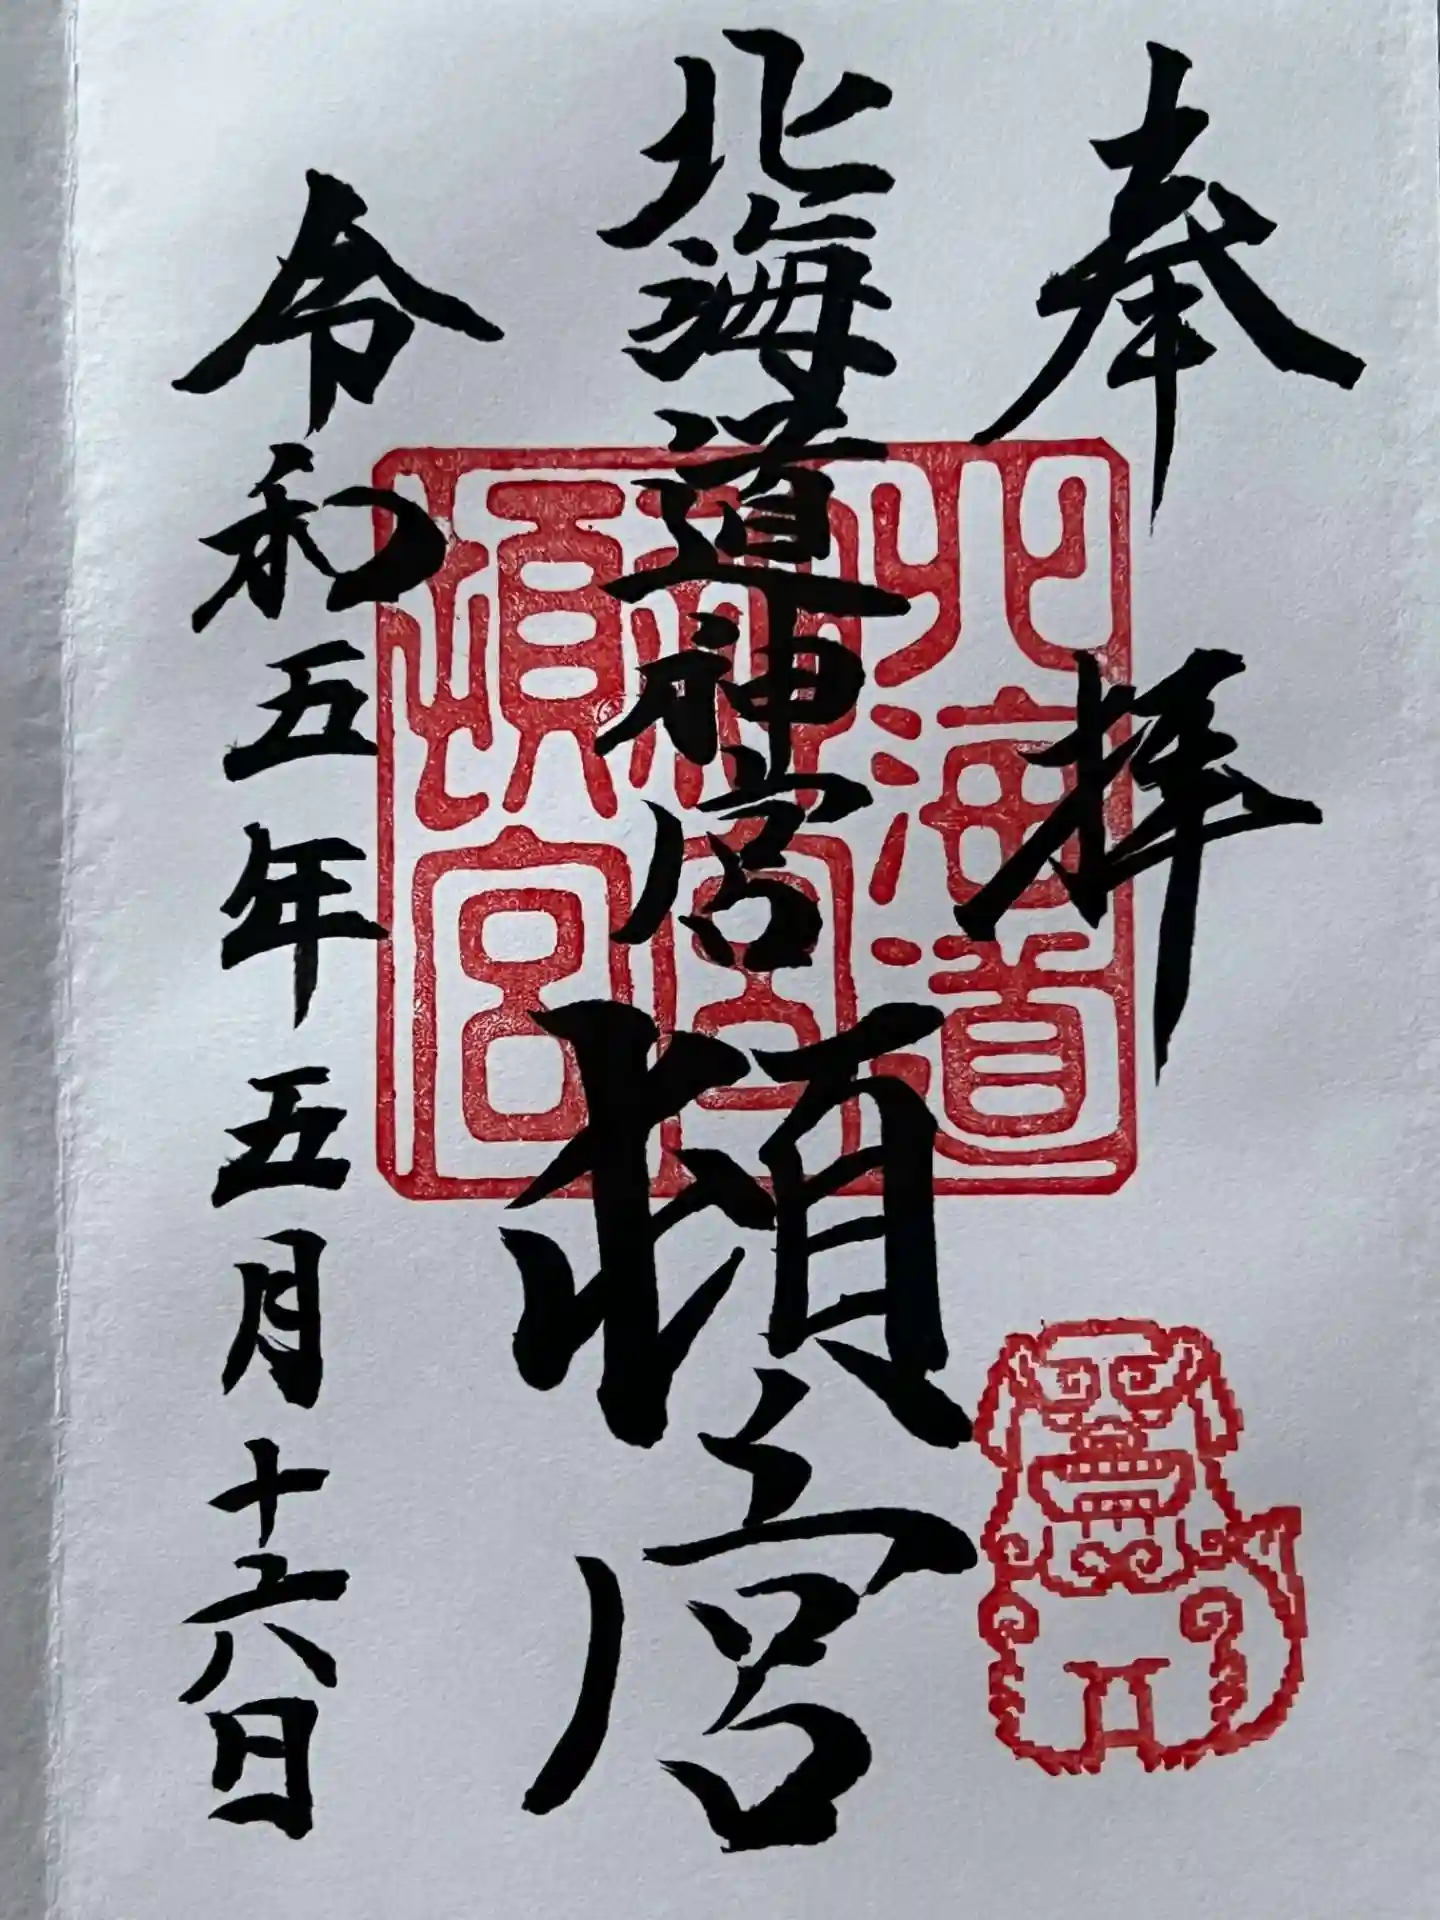 奉拝
北海道神宮
頓宮
令和五年五月十六日
北海道
神宮
頓宮